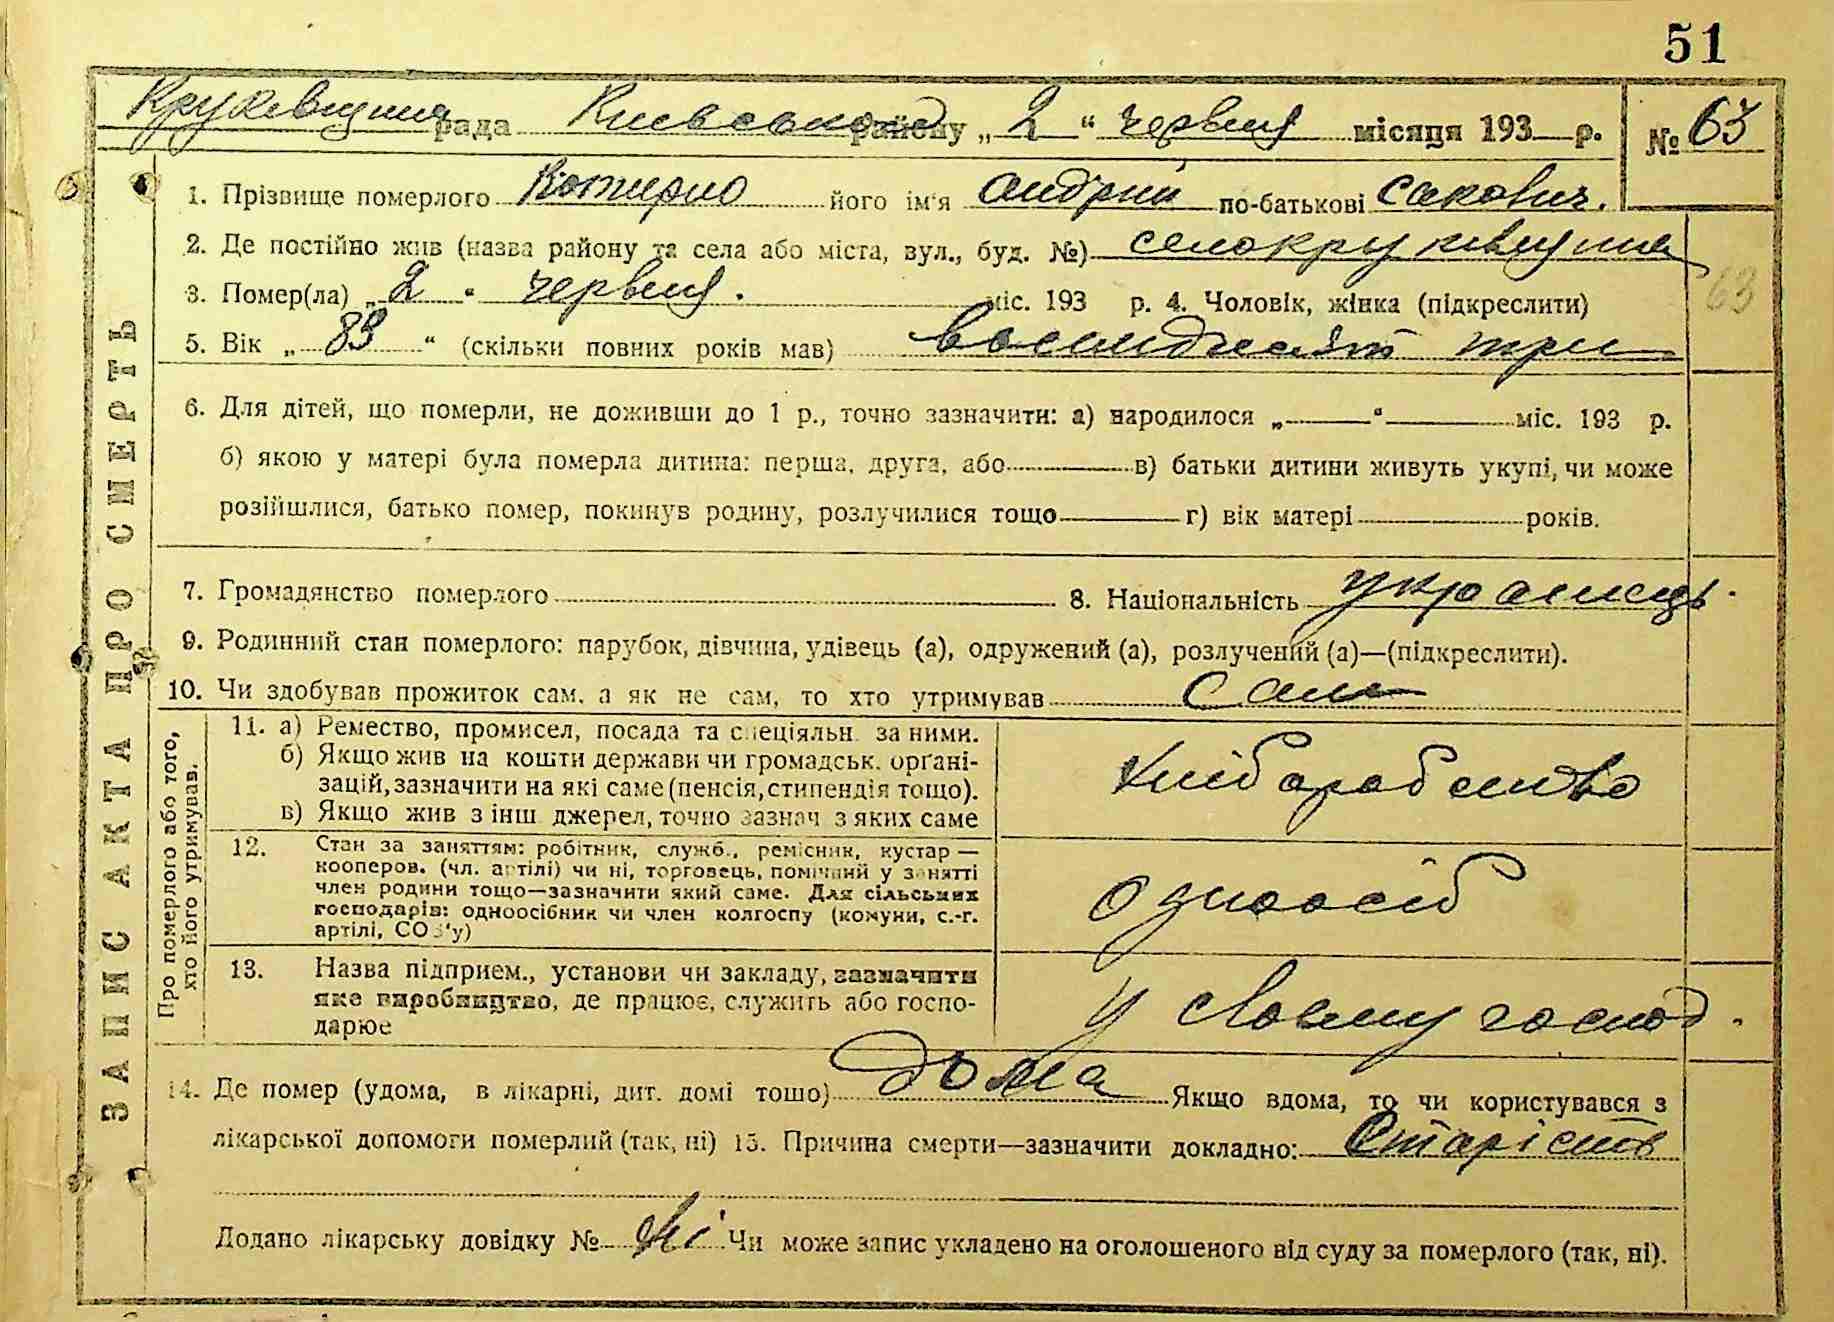 51
Круківщина рада Київськой району „ 2 “ червня місяця 193 р. № 63
1. Прізвище померлого Котирло його ім'я Андрій по-батькові Сакович.
2. Де постійно жив (назва району та села або міста, вул., буд. №) село круківщина
63
3. Помер(ла) „ 2 “ червня. міс. 193 р. 4. Чоловік, жінка (підкреслити)
5. Вік „ 83 “ (скільки повних років мав) восимдисят три
6. Для дітей, що померли, не доживши до 1 р., точно зазначити: а) народилося „ “ міс. 193 р.
б) якою у матері була померла дитина: перша, друга, або в) батьки дитини живуть укупі, чи може
розійшлися, батько помер, покинув родину, розлучилися тощо г) вік матері років.
7. Громадянство померлого 8. Національність українець.
9. Родинний стан померлого: парубок, дівчина, удівець (а), одружений (а), розлучений (а)—(підкреслити).
10. Чи здобував прожиток сам, а як не сам, то хто утримував сам
11. а) Ремество, промисел, посада та спеціяльн. за ними.
б) Якщо жив на кошти держави чи громадськ. органі-
зацій, зазначити на які саме (пенсія, стипендія тощо).
в) Якщо жив з інш джерел, точно зазнач з яких саме
хлібаробство
12. Стан за заняттям: робітник, служб., ремісник, кустар —
кооперов. (чл. артілі) чи ні, торговець, помічний у занятті
член родини тощо—зазначити який саме. Для сільських
господарів: одноосібник чи член колгоспу (комуни, с.-г.
артілі, СОЗ'у)
одноосіб
13. Назва підприєм., установи чи закладу, зазначити
яке виробництво, де працює, служить або госпо-
дарює
у своєму господ.
14. Де помер (удома, в лікарні, дит. домі тощо) дома Якщо вдома, то чи користувався з
лікарської допомоги померлий (так, ні) 15. Причина смерти—зазначити докладно: Старість
Додано лікарську довідку № ні Чи може запис укладено на оголошеного від суду за померлого (так, ні).
ЗАПИС АКТА ПРО СМЕРТЬ
Про померлого або того,
хто його утримував.